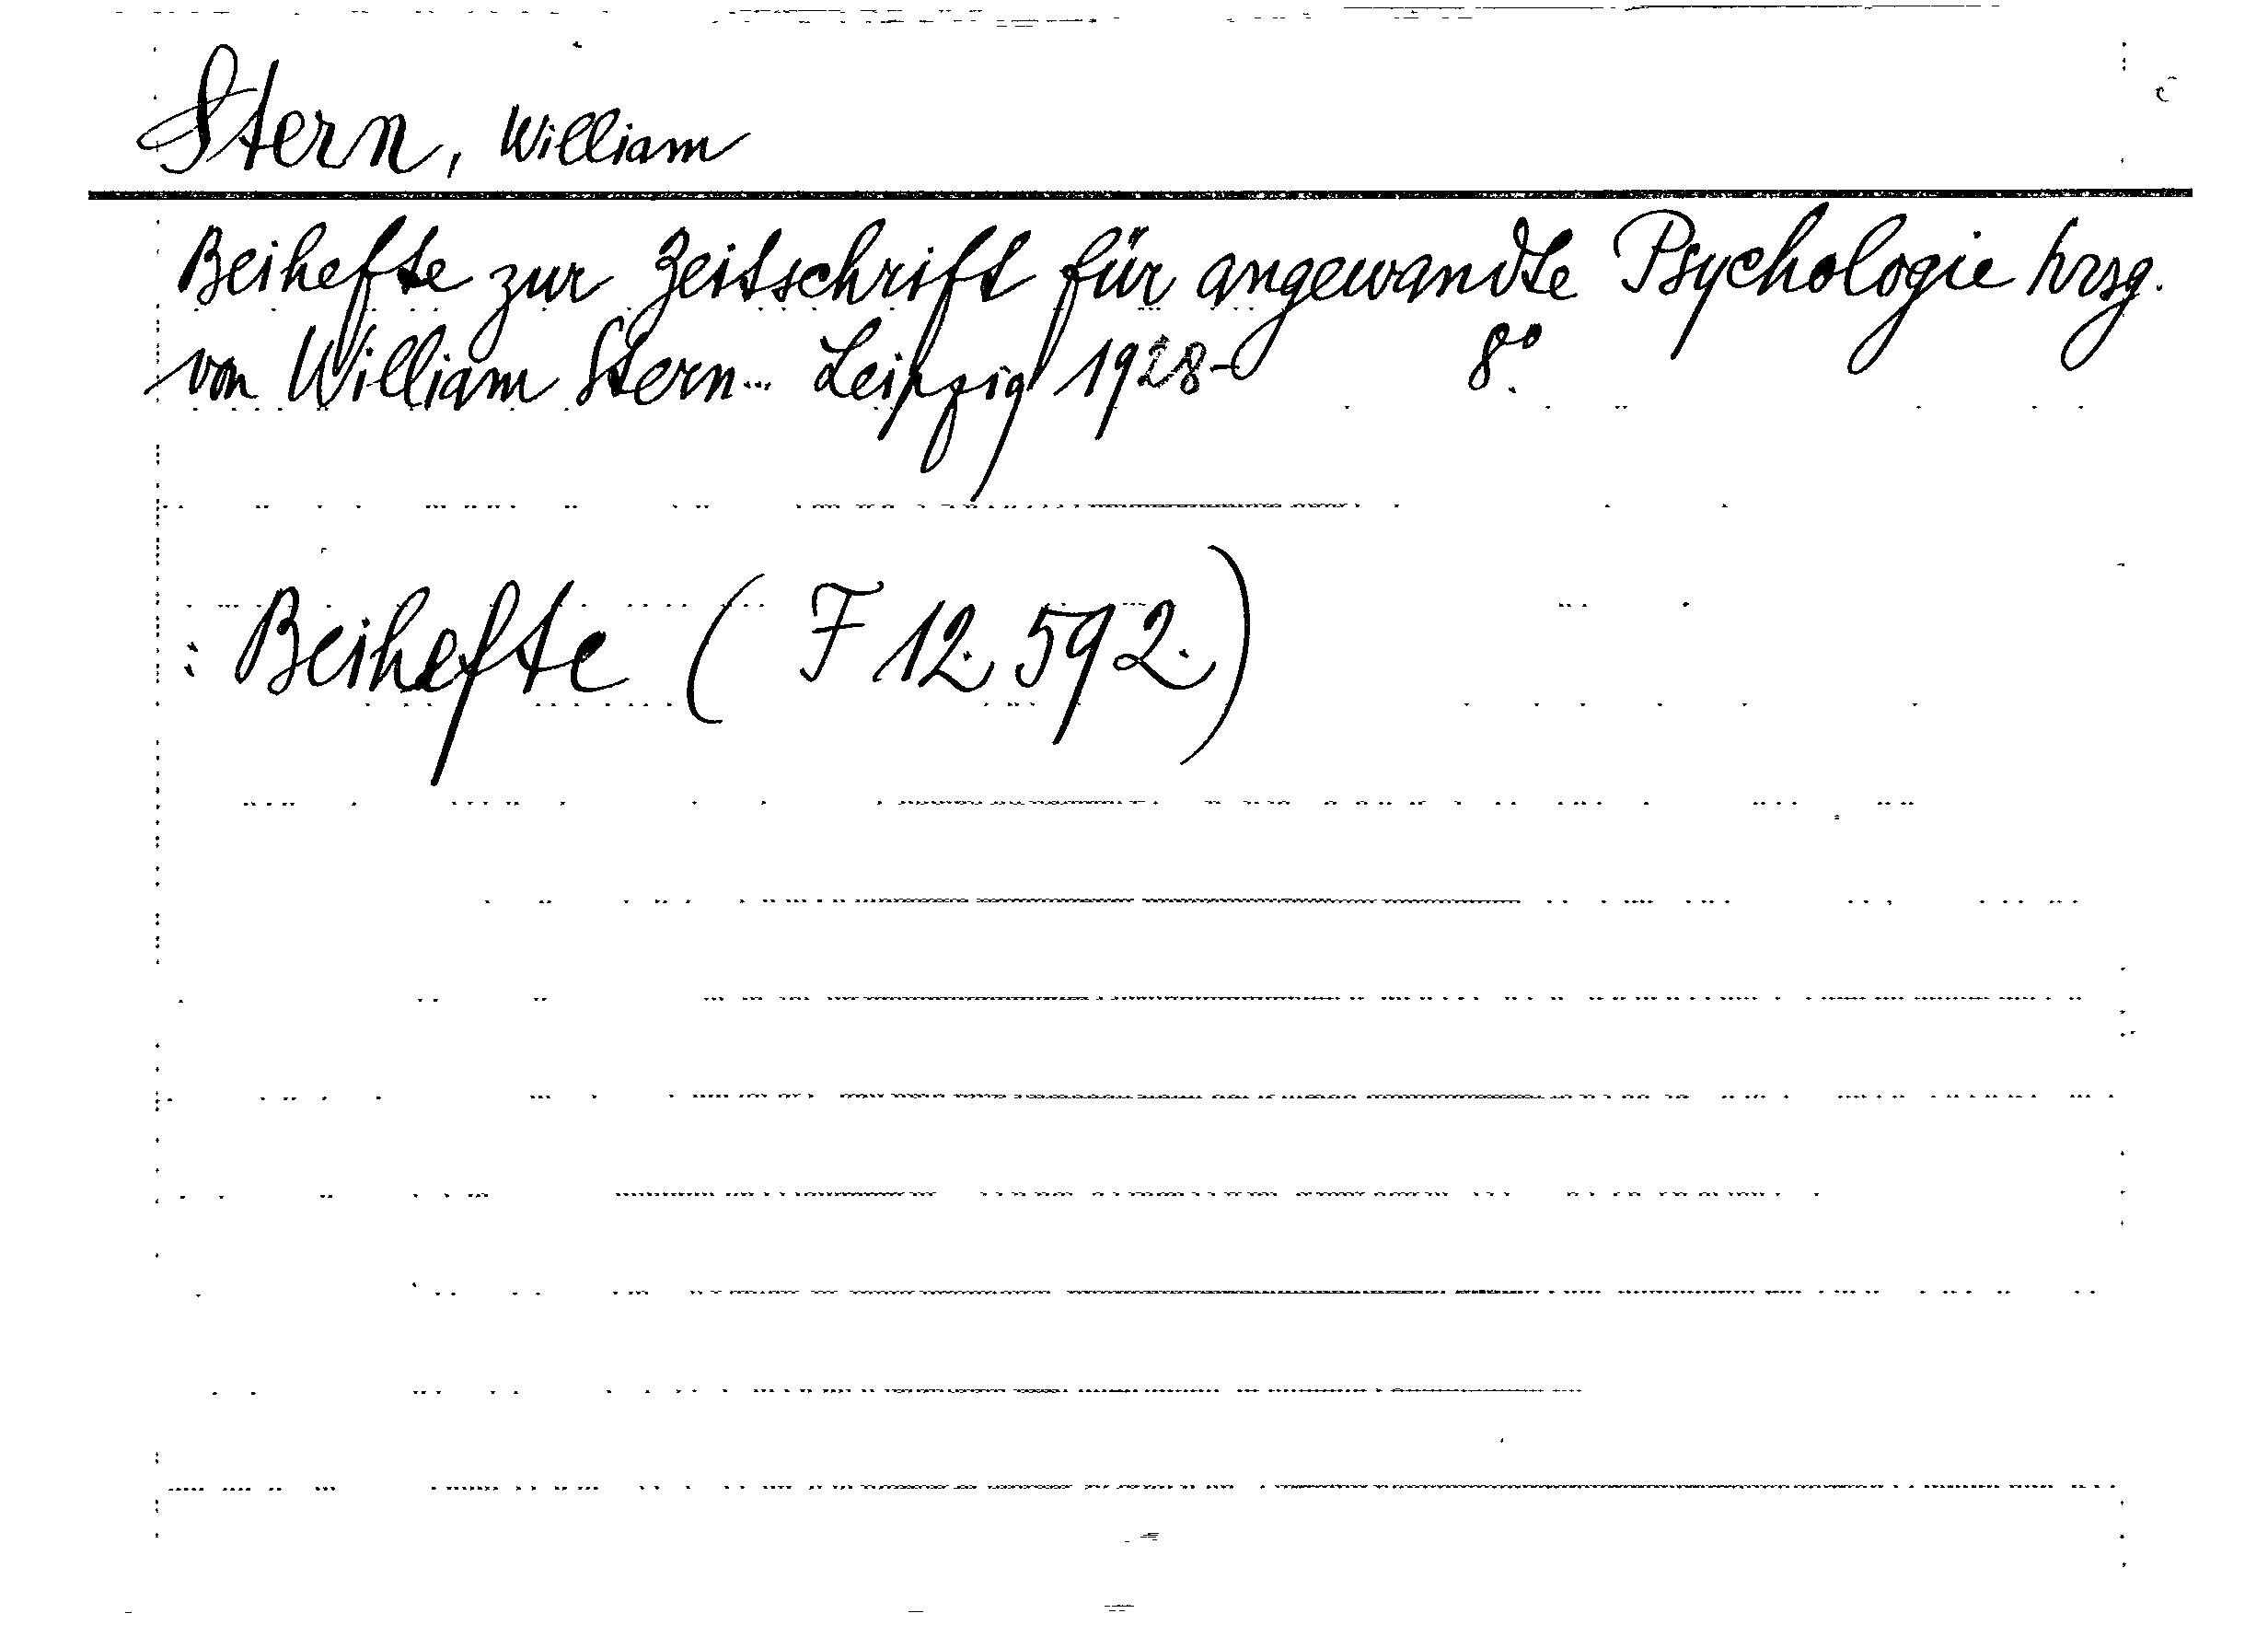 Stern, William
Beihefte zur Zeitschrift für angewandte Psychologie hrsg.
von William Stern... Leipzig 1928- 8°.
: Beihefte ( F 12.592.)